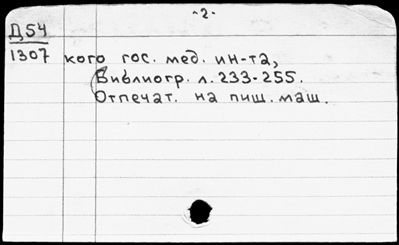 -2-
Д54
1307 кого гос. мед. ин-та,
Библиогр. л. 233-255.
Отпечат. на пиш. маш.